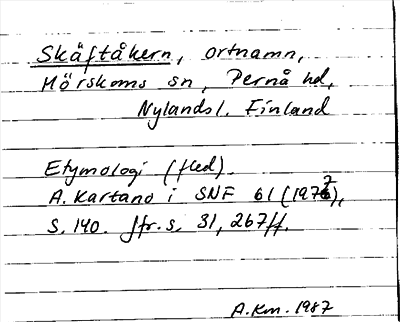 Skäftåkern, ortnamn,
Mörskoms sn, Pernå hd,
Nylands l. Finland
Etymologi (fled).
A. Kartano i SNF 61 (1977),
s. 140. Jfr. s. 31, 267ff.
A. Km. 1987